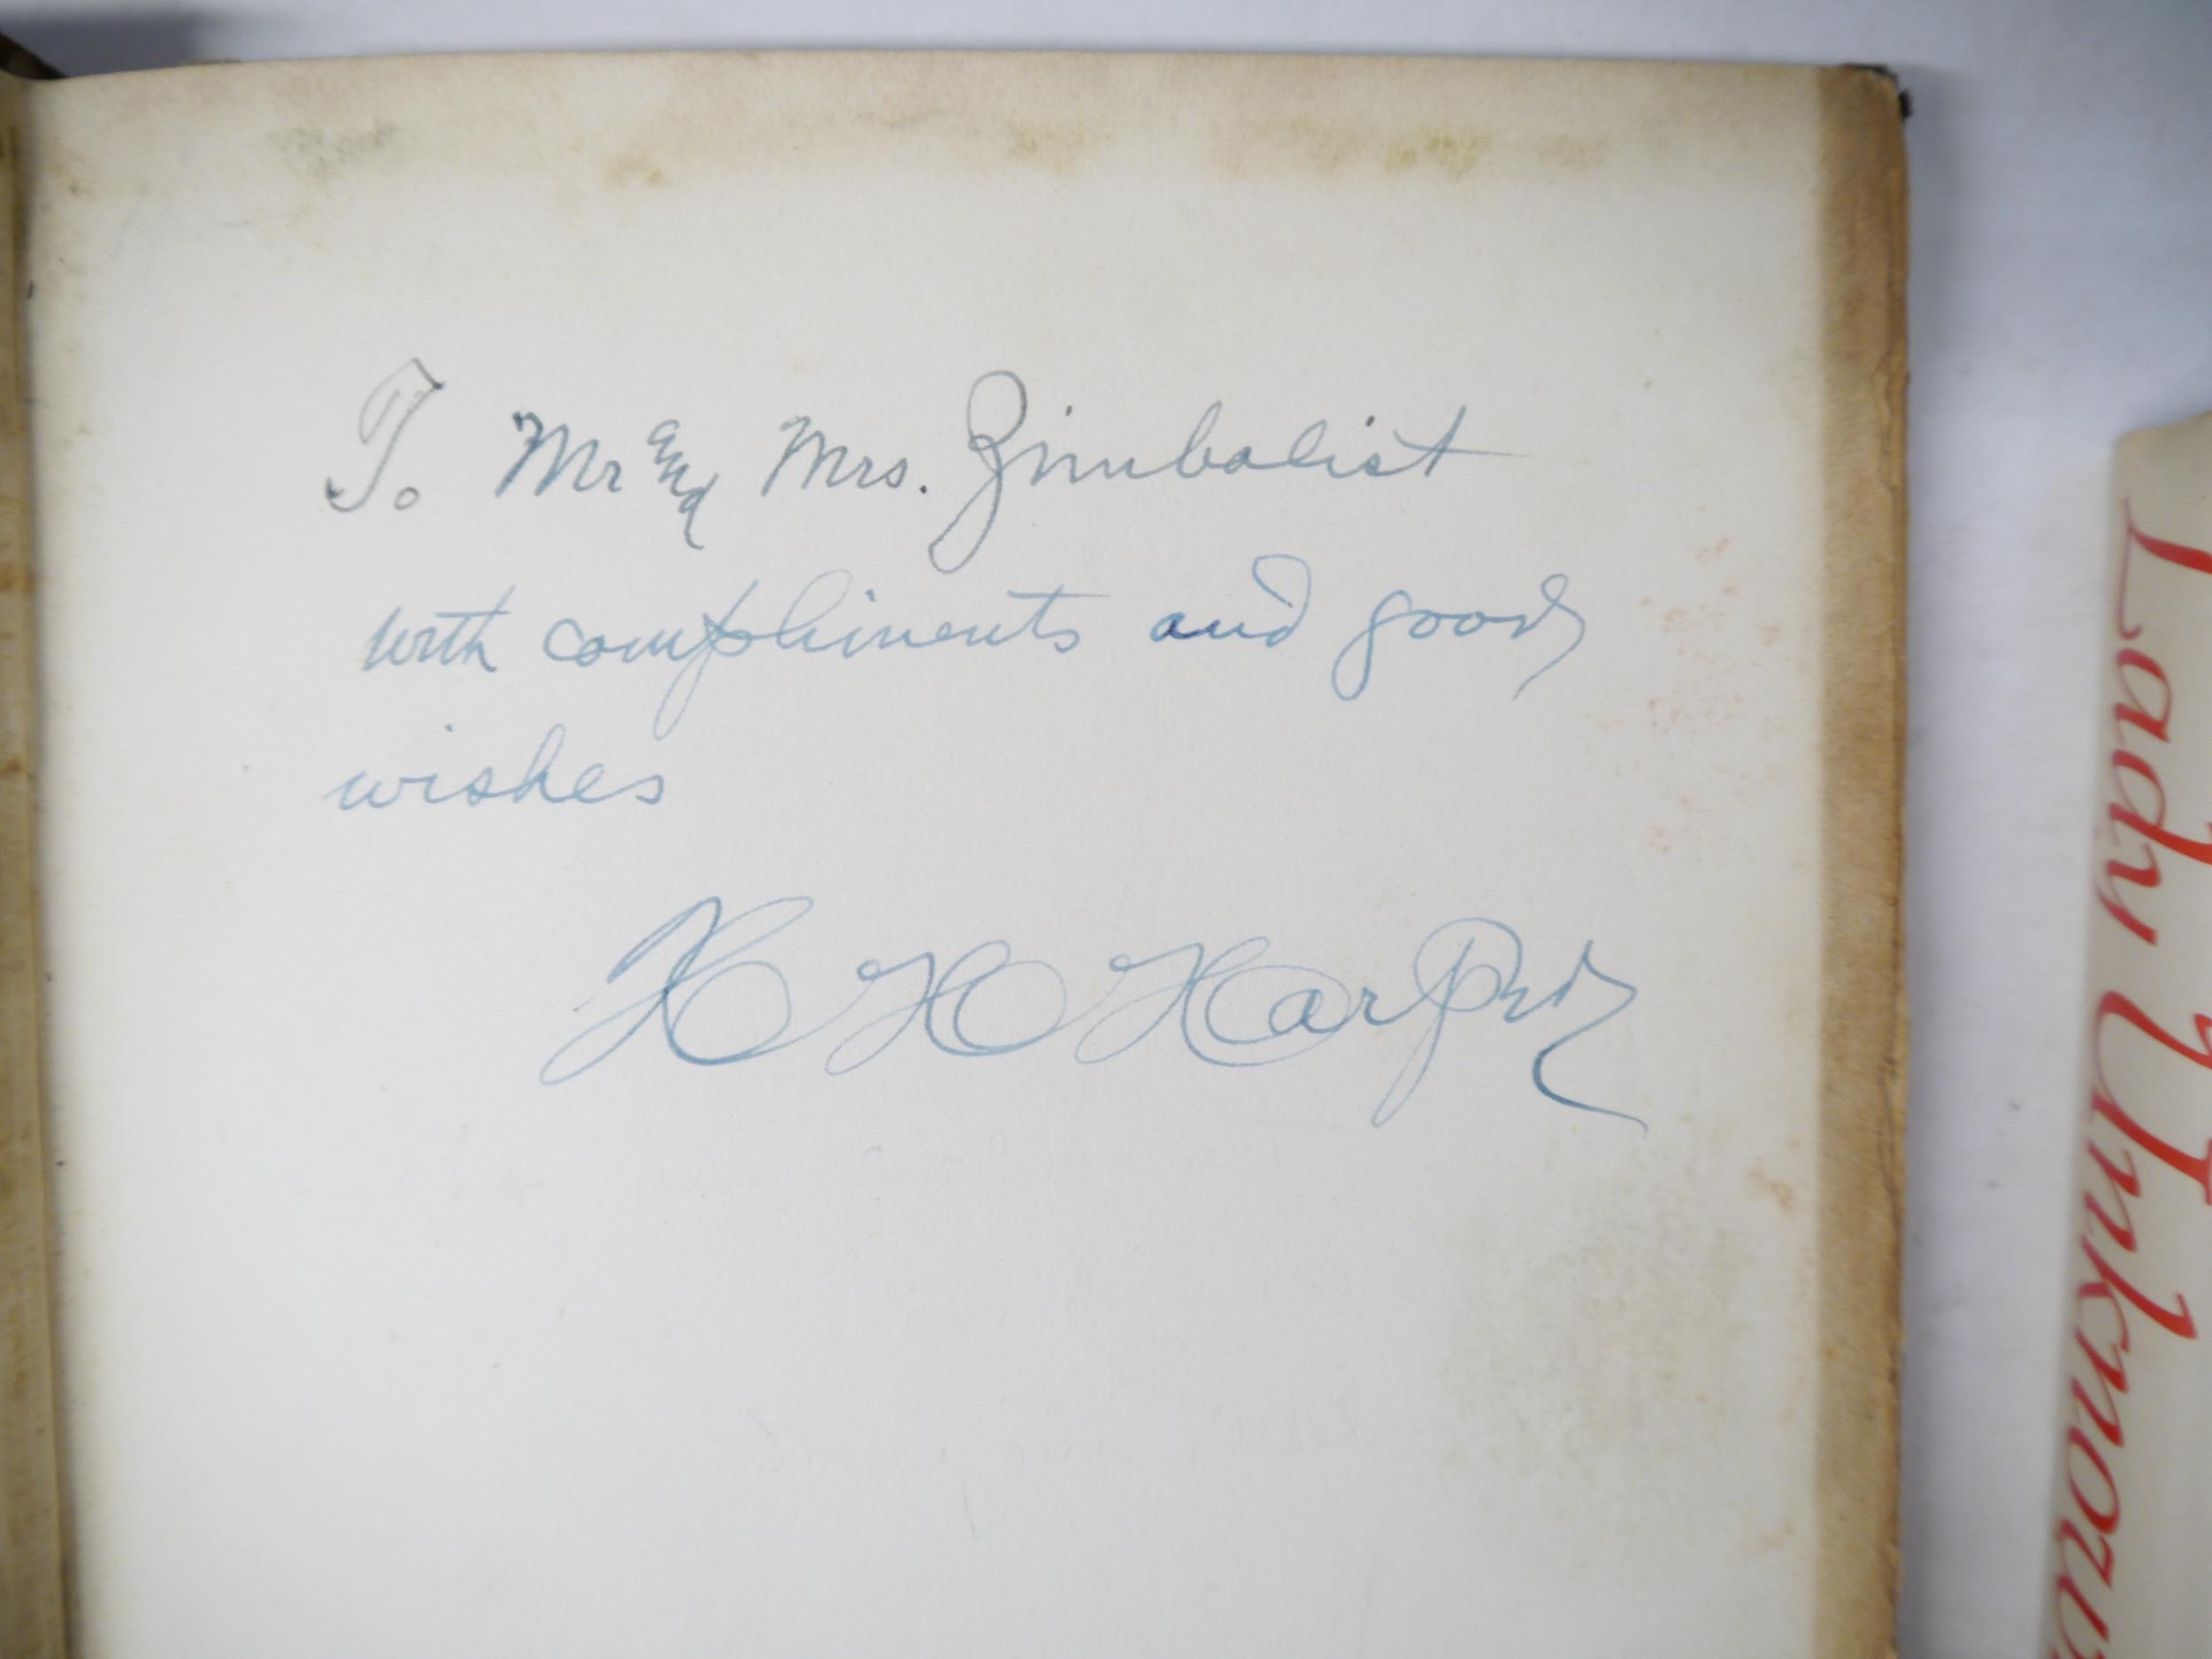 To Mr and Mrs. Zimbalist
with compliments and good
wishes
H H Harper
Lady Unknown